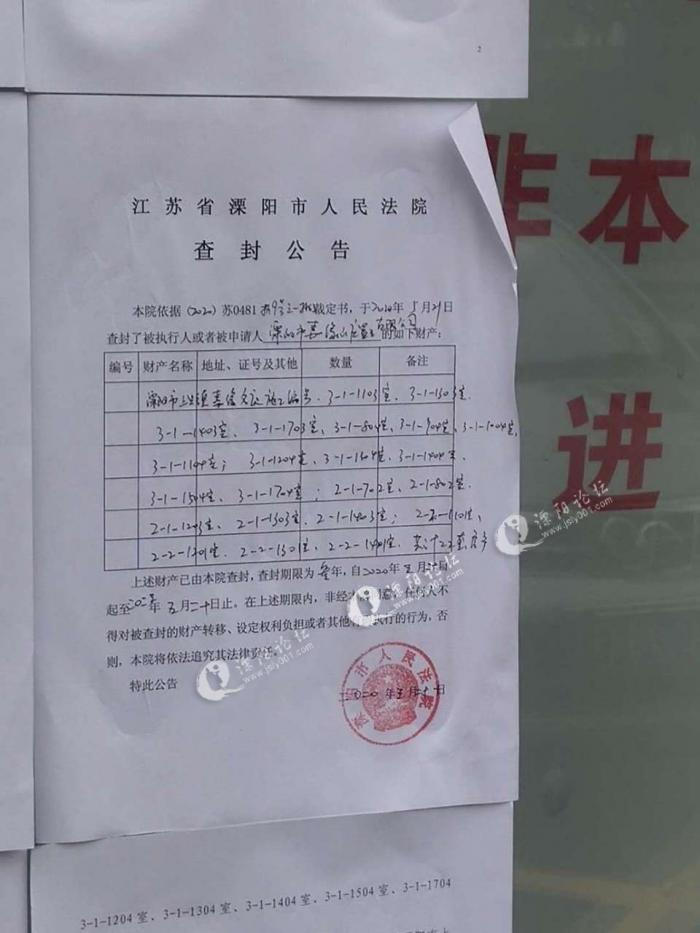 2
江苏省溧阳市人民法院
查封公告
本院依据（2020）苏0481 裁定书，于2020年5月21日
查封了被执行人或者被申请人 溧阳市 有限公司 的如下财产：
编号 财产名称 地址、证号及其他 数量 备注
溧阳市 3-1-1103室、3-1-1303室、
3-1-1403室、3-1-1703室、3-1-804室、3-1-904室、3-1-1004室、
3-1-1104室；3-1-1204室、3-1-1304室、3-1-1404室、
3-1-1504室、3-1-1704室；2-1-702室、2-1-802室、
2-1-1203室、2-1-1303室、2-1-1403室；
2-2-1201室、2-2-1301室、2-2-1401室、共
上述财产已由本院查封，查封期限为叁年，自2020年五月
起至 年五月二十日止。在上述期限内，非经本 ，任何人不
得对被查封的财产转移、设定权利负担或者其他 执行的行为，否
则，本院将依法追究其法律责任。
特此公告
市人民法院
二〇二〇年五月 日
3-1-1204室、3-1-1304室、3-1-1404室、3-1-1504室、3-1-1704
非本
进
溧阳论坛
www.jsly001.com
溧阳论坛
www.jsly001.com